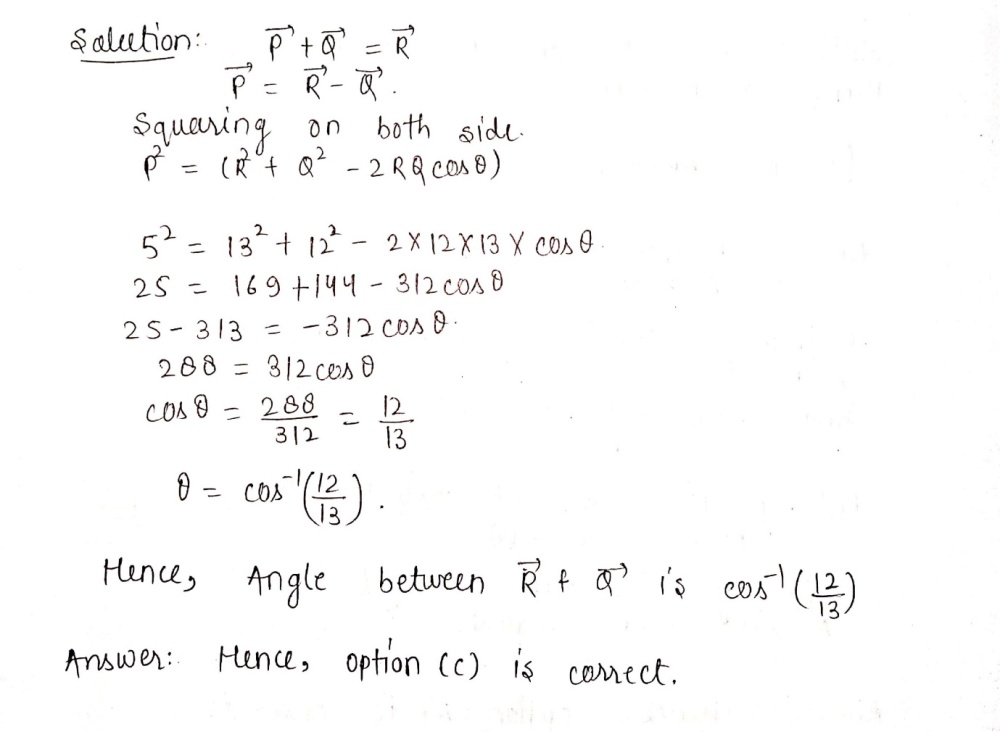 Solution: P⃗ + Q⃗ = R⃗
P⃗ = R⃗ - Q⃗.
Squaring on both side.
P² = (R² + Q² - 2RQ cosθ)
5² = 13² + 12² - 2×12×13×cosθ.
25 = 169+144 - 312cosθ
25-313 = -312cosθ.
288 = 312cosθ
cosθ = 288/312 = 12/13
θ = cos⁻¹(12/13).
Hence, Angle between R⃗ & Q⃗ is cos⁻¹(12/13)
Answer: Hence, option (c) is correct.